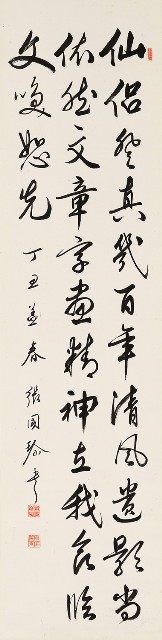 仙侶登真幾百年清風遺影尚
依然文章字畫精神在我臨
文喚恕先
丁丑春張國